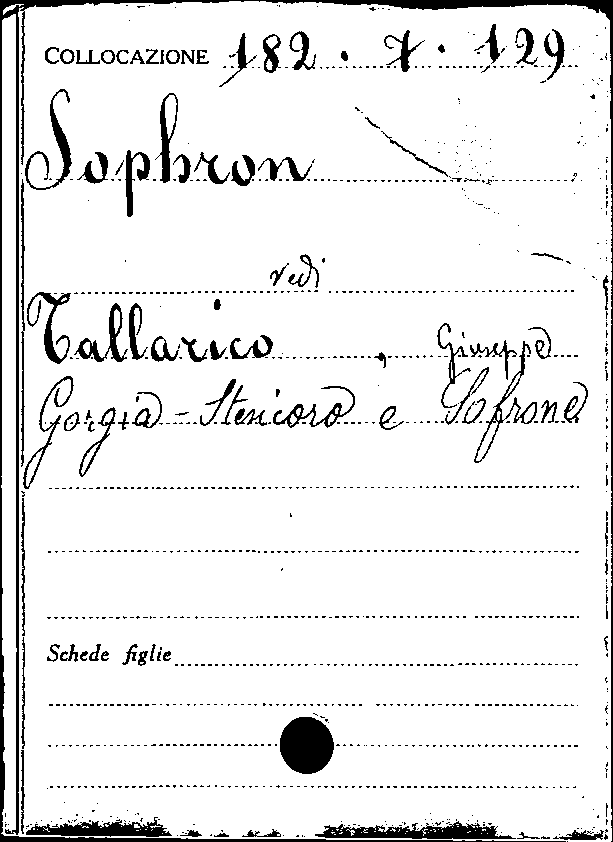 COLLOCAZIONE 182 . 7 . 129
Sophron
vedi
Tallarico , Giuseppe
Gorgia - Stesicoro e Sofrone
Schede figlie